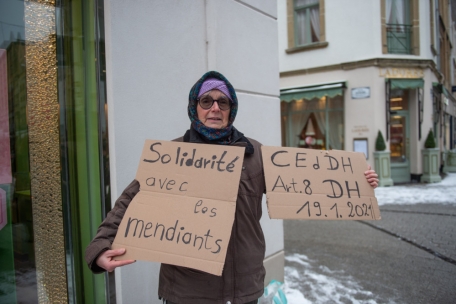 Solidarité
avec
les
mendiants
CEdDH
Art.8 DH
19.1.2021